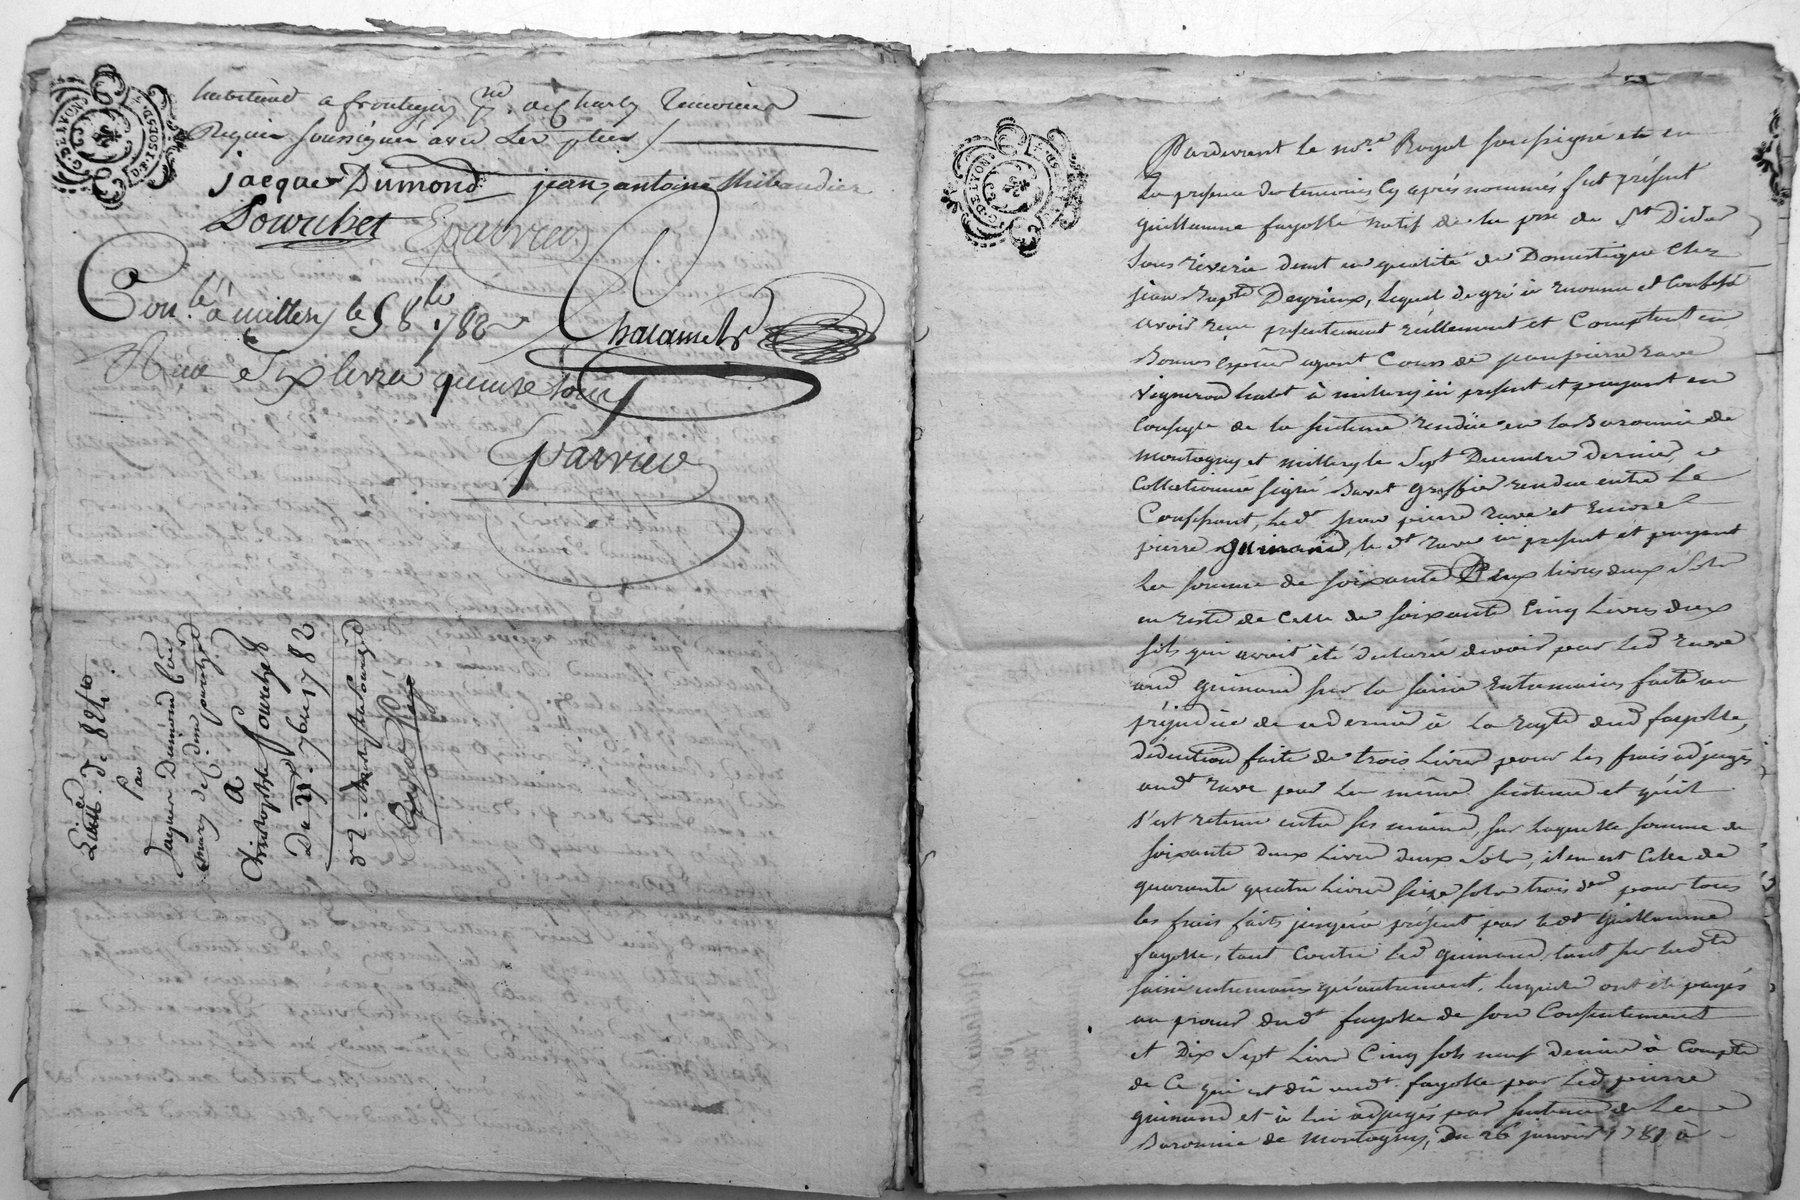 habitant a frontigny psse de Charly temoins
Requis soussignés avec les pties
jacque Dumond jean antoine thibaudier
Dourchet Eparvieu
Conlé à millery le 5 8bre 1782
Reçu six livres quinze sous
Chalamel
Eparvieu
8bre
Par
Jacques Dumond
A
Christophle
Du 29 7bre 1782
Pardevant le nore Royal soussigné et en
La presence des temoins cy après nommés fut présent
guillaume fayolle natif de la psse de St Didier
sous riverie dmt en qualité de Domestique chez
jean Bapte Deyrieux, lequel de gré à reconnu et confessé
avoir reçu présentement réellement et comptant en
Bonnes espèces ayant Cours de jean pierre rave
vigneron habt à millery ici présent et payant en
Conseqce de la sentence rendüe en la Baronnie de
montagny et millery le Sept Decembre dernier
Collationné signé Bavet greffier rendue entre Le
Confessant, led. jean pierre rave et Encore
pierre guinand, le dt rave ici présent et payant
La somme de soixante Deux livres deux Sols
en reste de Celle de soixante Cinq Livres deux
sols qui avoit été déclarée devoir par led rave
aud guinand sur la saisie Entremains faite au
préjudice de ce dernier à la reqte dud fayolle,
déduction faite de trois Livres pour les frais adjugés
audt rave par la même sentence et qu'il
s'est retenu entre ses mains, sur laquelle somme de
soixante deux Livres deux Sols, il en est Celle de
quarante quatre Livres seize sols trois den pour tous
les frais faits jusqu'à présent par ledt guillaume
fayolle, tant Contre led guinand, tant sur ladte
saisie entremains qu'autrement, lesquels ont été payés
au procur dudt fayolle de son Consentement
et Dix Sept Livres Cinq sols neuf deniers à Compte
de Ce qui est dû audt fayolle par led pierre
guinand et à lui adjugés par sentence de La
Baronnie de montagny, du 26 janvier 1781 à